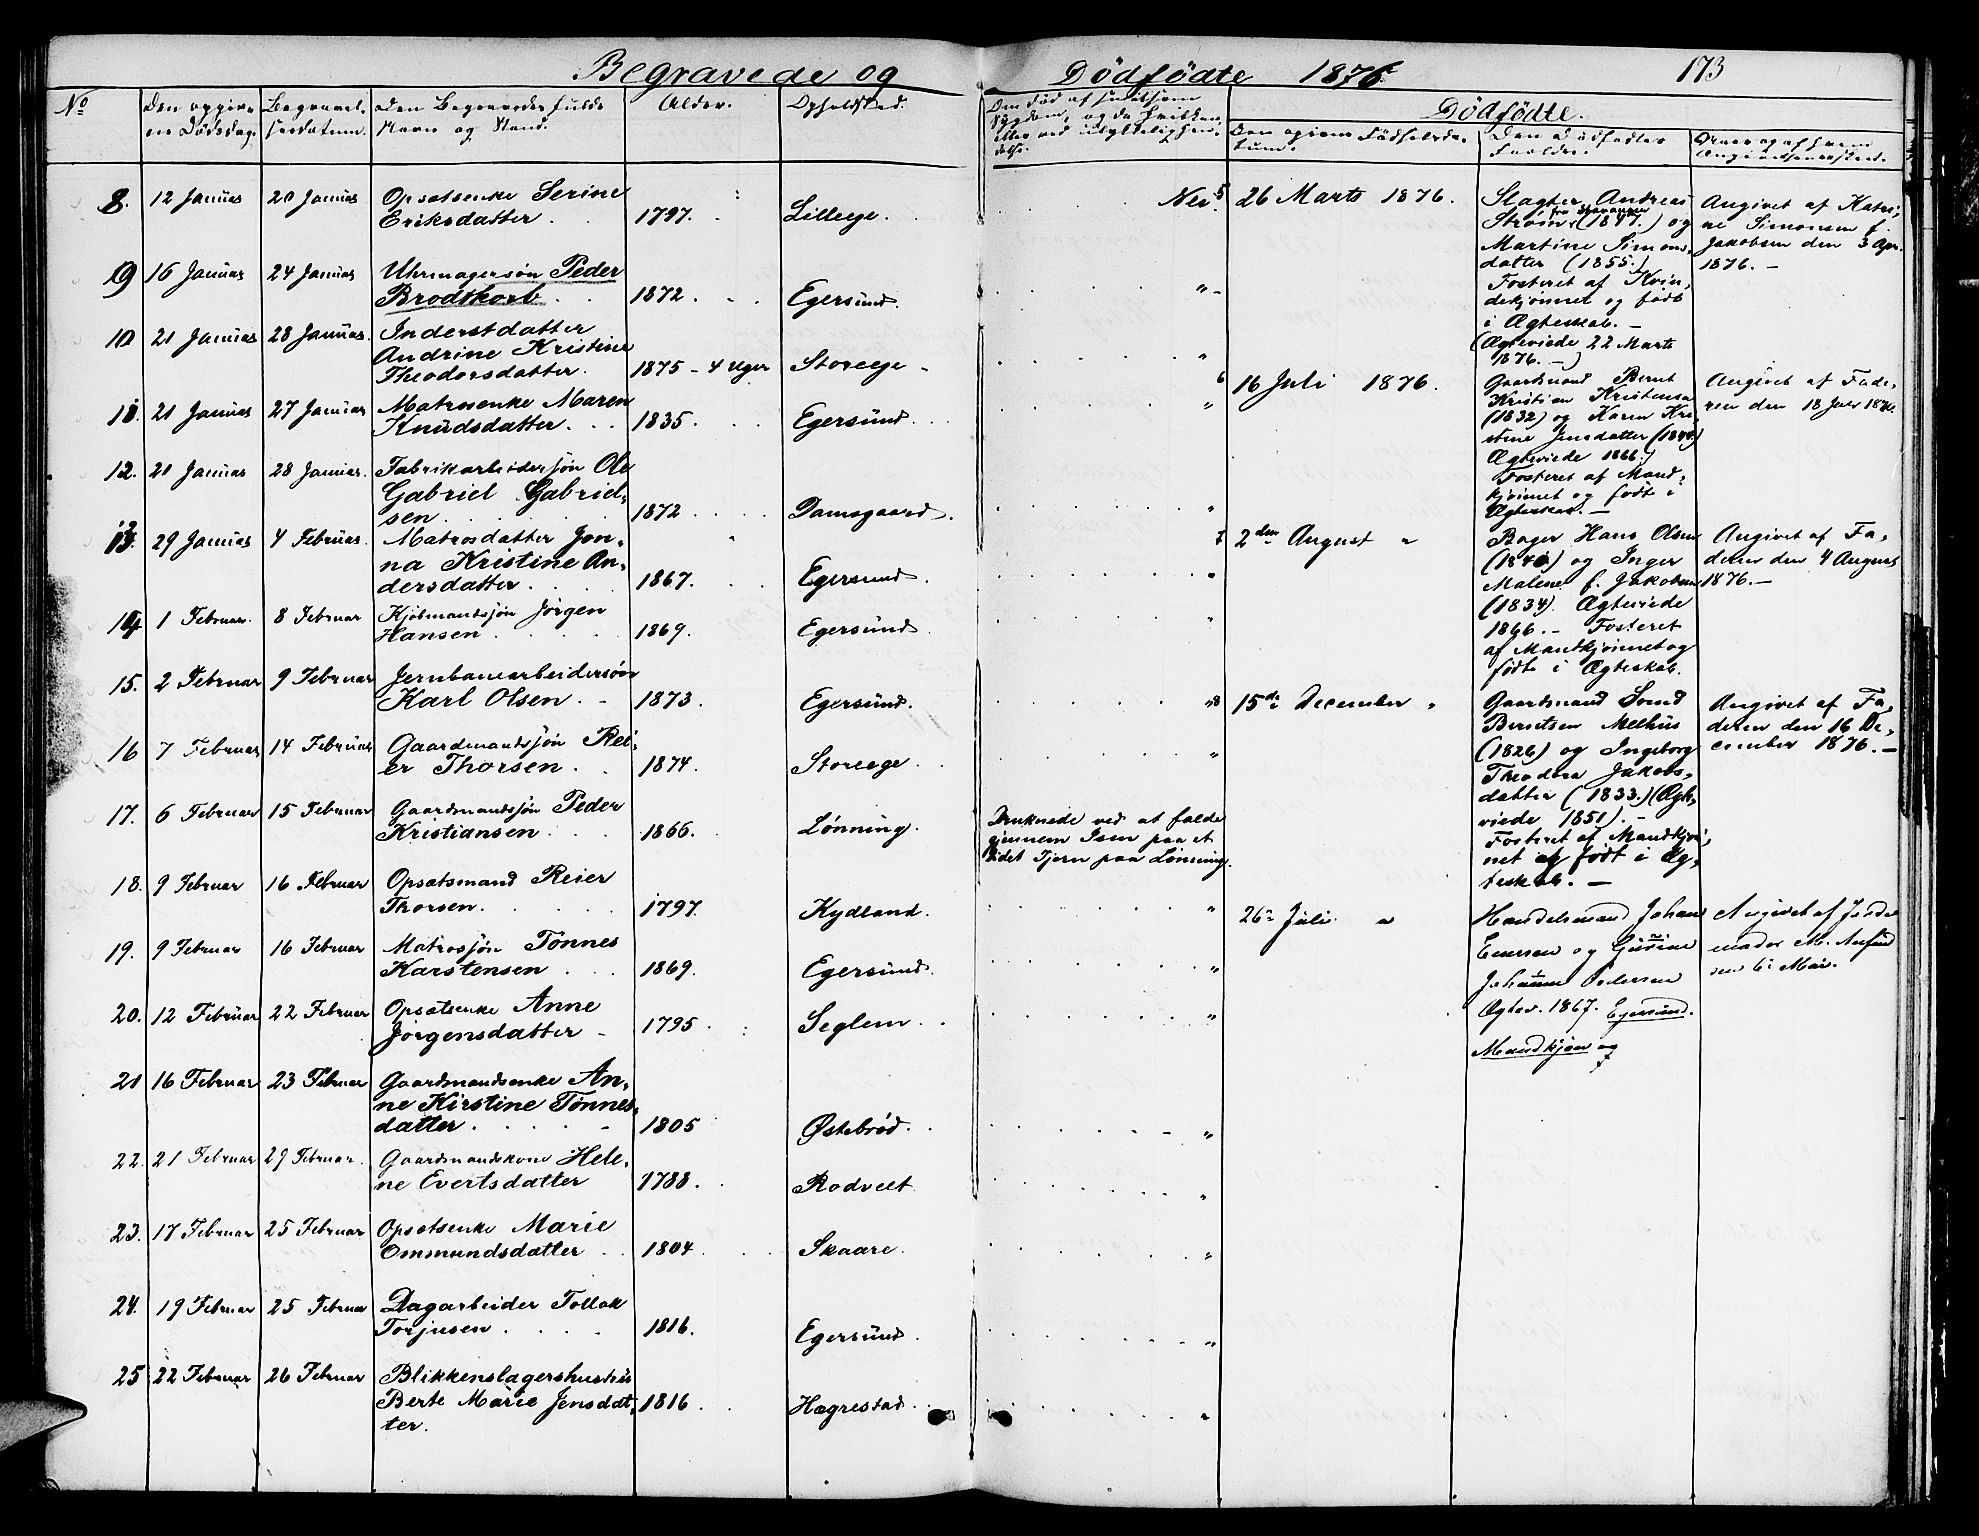 Begravede og Dödfödte 1876. 173
No
Den opgivne Dødsdag.
Begravelsesdatum.
Den Begravedes fulde
Navn og Stand.
Alder.
Opholdsted.
Dödfödte.
8. 12 Januar 20 Januar Opsætsenke Serine
Eriksdatter . 1797. . Lilleege.
9 16 Januar 24 Januar Uhrmagersön Peder
Brodtkorb . . 1872. . . Egersund.
10 21 Januar 28 Januar. Inderstdatter
Andrine Kristine
Theodorsdatter. 1875 - 4 Uger Storeege
11. 21 Januar 27 Januar Matrosenke Maren
Knudsdatter. . . 1835. Egersund.
12. 21 Januar 28 Januar. Fabrikarbeidersøn Ole
Gabriel Gabriel-
sen. 1872 Damsgaard.
13. 29 Januar 4 Februar. Matrosdatter Jon-
na Kristine An-
dersdatter. 1867. Egersund.
14 1 Februar. 8 Februar Kjøbmandssjøn Jörgen
Hansen. 1869. Egersund.
15. 2 Februar 9 Februar Jernbanearbeidersön
Karl Olsen. - 1873. Egersund.
16 7 Februar 14 Februar Gaardmandssjøn Rei-
er Thorsen. 1874. Storeege
17. 6 Februar 15 Februar Gaardmandssjøn Peder
Kristiansen. 1866. Lønning.
Druknede ved at falde
gjennem Isen paa et
lidet Tjern paa Lönning.
18. 9 Februar 16 Februar Opsætsmand Reier
Thorsen. 1797. Kydland.
19. 9 Februar 16 Februar Matrossjøn Tönnes
Karstensen 1869. Egersund.
20. 12 Februar 22 Februar Opsætsenke Anne
Jörgensdatter - 1795. Seglem.
21 16 Februar 23 Februar Gaardmandsenke An-
ne Kirstine Tønnes-
datter. 1805 Østebrød.
22. 21 Februar 29 Februar. Gaardmandskone Hele-
ne Evertsdatter 1788. Rodvelt
23. 17 Februar 25 Februar Opsætsenke Marie
Ommundsdatter 1804. Skaare.
24. 19 Februar 25 Februar Dagarbeider Tollak
Torjusen. 1816. Egersund.
25 22 Februar 26 Februar Blikkenslagershustru
Berte Marie Jensdat-
ter. 1816. Hægrestad.
5 26 Marts 1876.
Slagter Andreas
Ström, fra Stavanger (1847.) og
Martine Simons-
datter (1855.)
Fosteret af Kvin-
dekjönnet og født
i Ægteskab. -
(Ægteviede 22 Marts
1876. -)
Angivet af Katri-
ne Simonsen f.
Jakobsen den 3 Apr.
1876. -
6 16 Juli 1876.
Gaardmand Bernt
Kristian Kristensen
(1832) og Karen Kri-
stine Jensdatter (1844)
Ægteviede 1866.)
Fosteret af Mand-
kjönnet og født i
Ægteskab. -
Angivet af Fade-
ren den 18 Juli 1876.
7 2den August "
Bager Hans Olsen
(1840) og Inger
Malene f. Jakobsen
(1834). Ægteviede
1866. - Fosteret
af Mandkjönnet og
fødte i Ægteskab.
Angivet af Fa-
deren den 4 August
1876. -
8 15de December "
Gaardmand Svend
Berntsen Melhus
(1826) og Ingeborg
Theodora Jakobs-
datter (1833.) (Ægte-
viede 1851). -
Fosteret af Mandkjön-
net og født i Æg-
teskab. -
Angivet af Fa-
deren den 16 De-
cember 1876. -
26de Juli "
Handelsmand Johan
Enersen og Gurine
Johanne Pedersen
Ægtev. 1867. Egersund.
Mandkjøn og
Angivet af Jorde-
moder M.